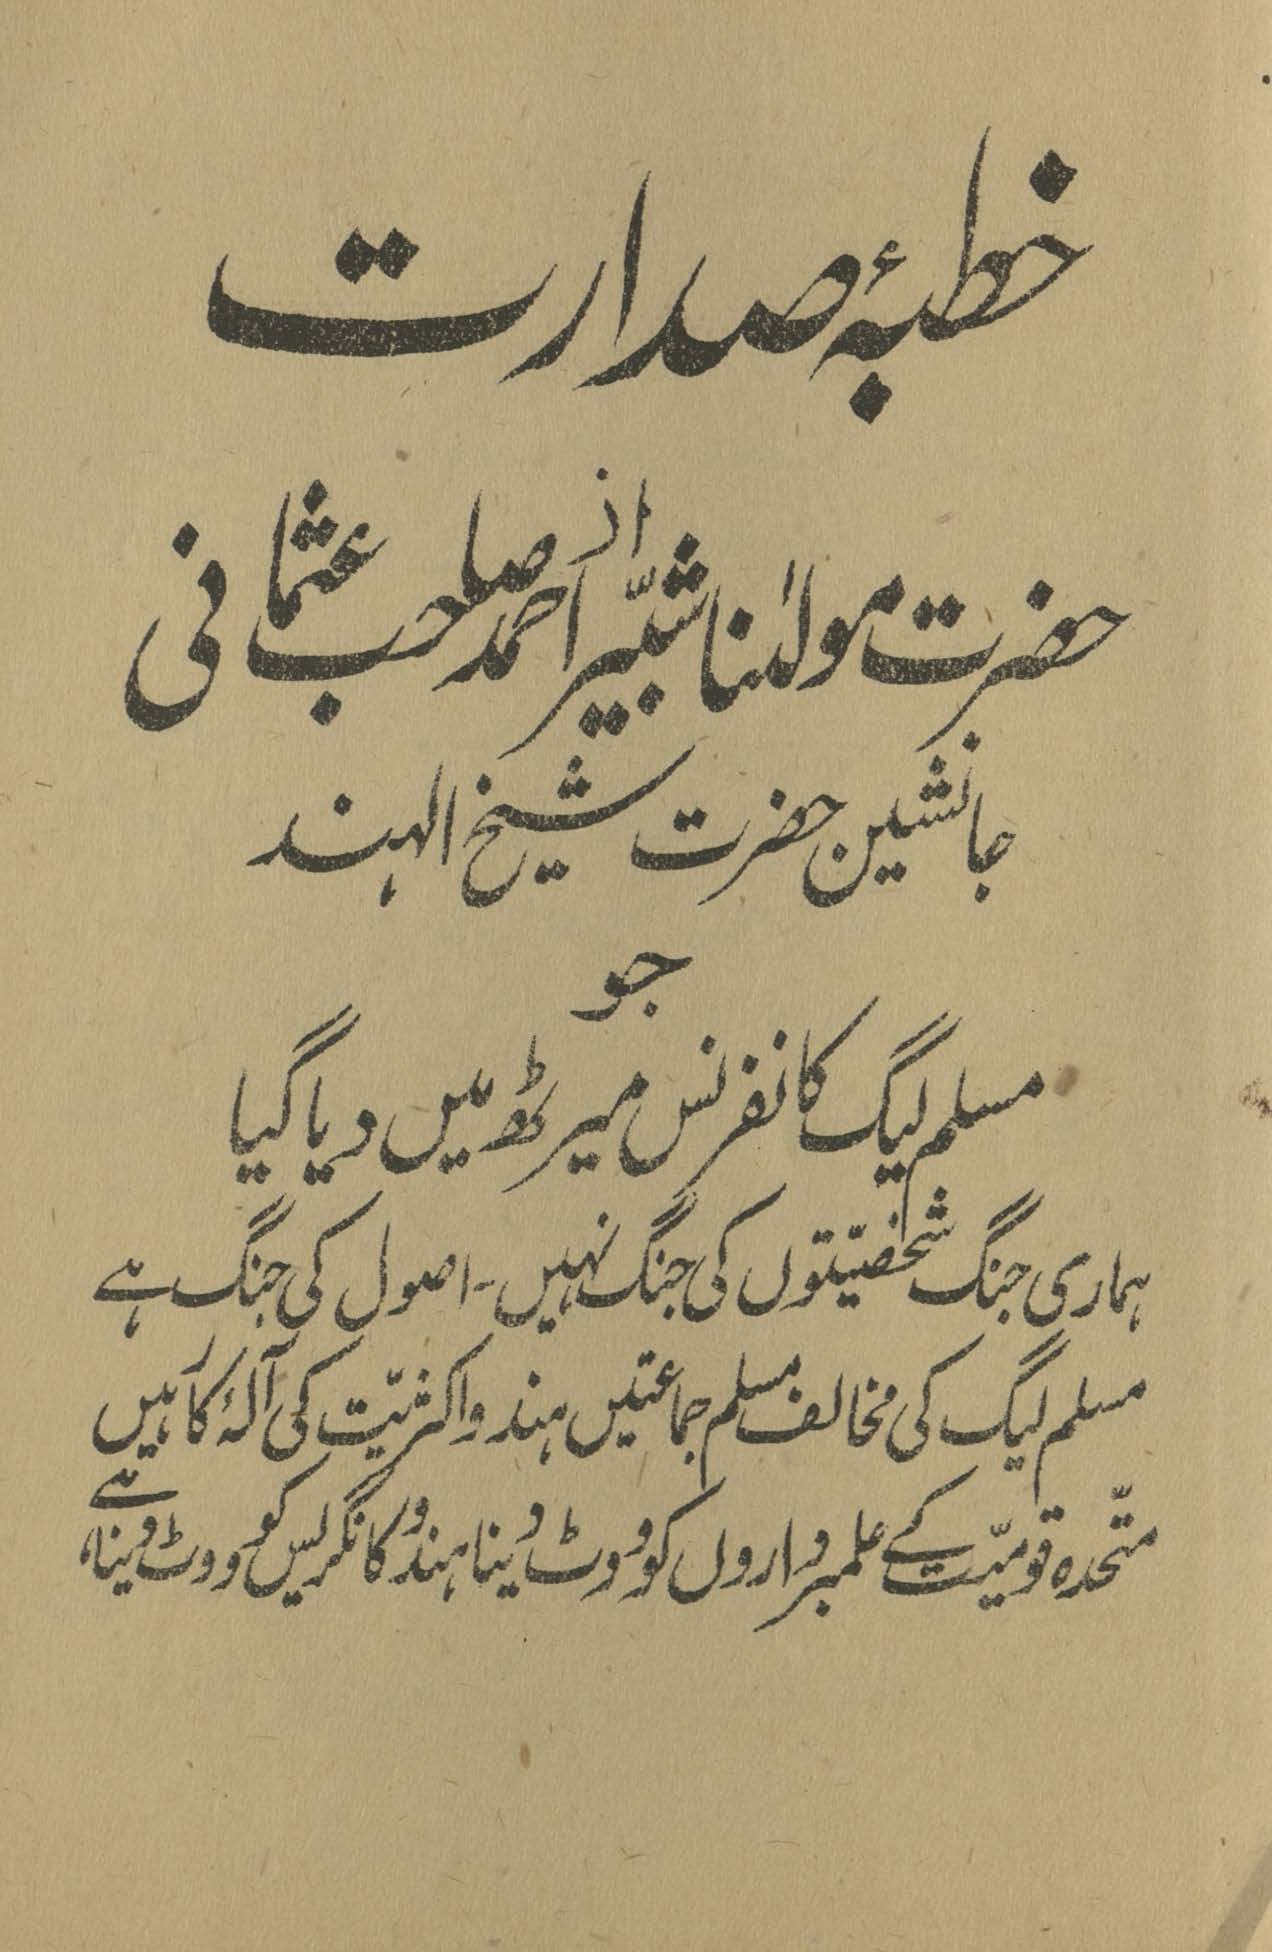 خطبۂ صدارت
از
حضرت مولٰنا شبّیر احمد صاحب عثمانی
جانشین حضرت شیخ الہند
جو
مسلم لیگ کانفرنس میرٹھ میں دیا گیا
ہماری جنگ شخصیّتوں کی جنگ نہیں - اصول کی جنگ ہے
مسلم لیگ کی مخالف مسلم جماعتیں ہندو اکثریّت کی آلۂ کار ہیں
متّحدہ قومیّت کے علمبرداروں کو ووٹ دینا ہندو کانگریس کو ووٹ دینا ہے